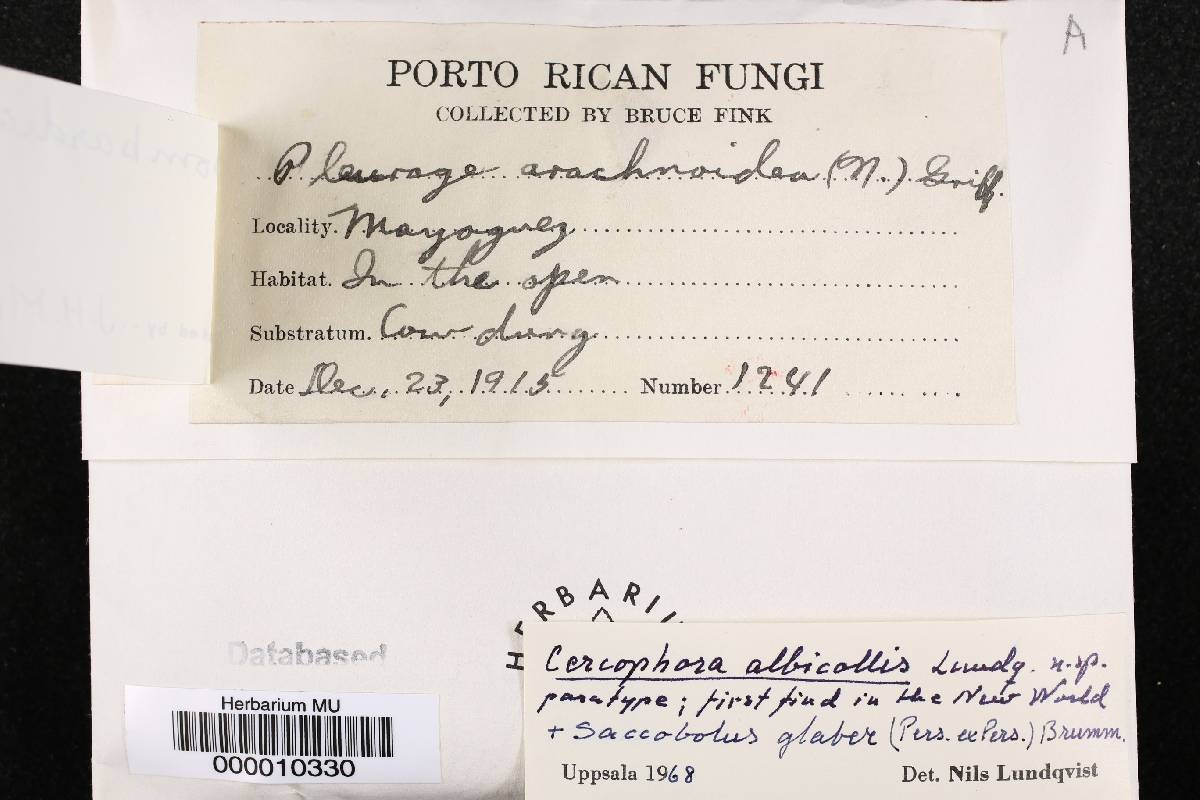 A
PORTO RICAN FUNGI
COLLECTED BY BRUCE FINK
Pleurage arachnoidea (N.) Griff.
Locality. Mayaguez
Habitat. In the open
Substratum. Cow dung
Date Dec. 23, 1915 Number 1241
HERBARIU
Databased
Herbarium MU
000010330
Cercophora albicollis Lundq. n. sp.
paratype; first find in the New World
+ Saccobolus glaber (Pers. ex Pers.) Brumm.
Uppsala 1968 Det. Nils Lundqvist